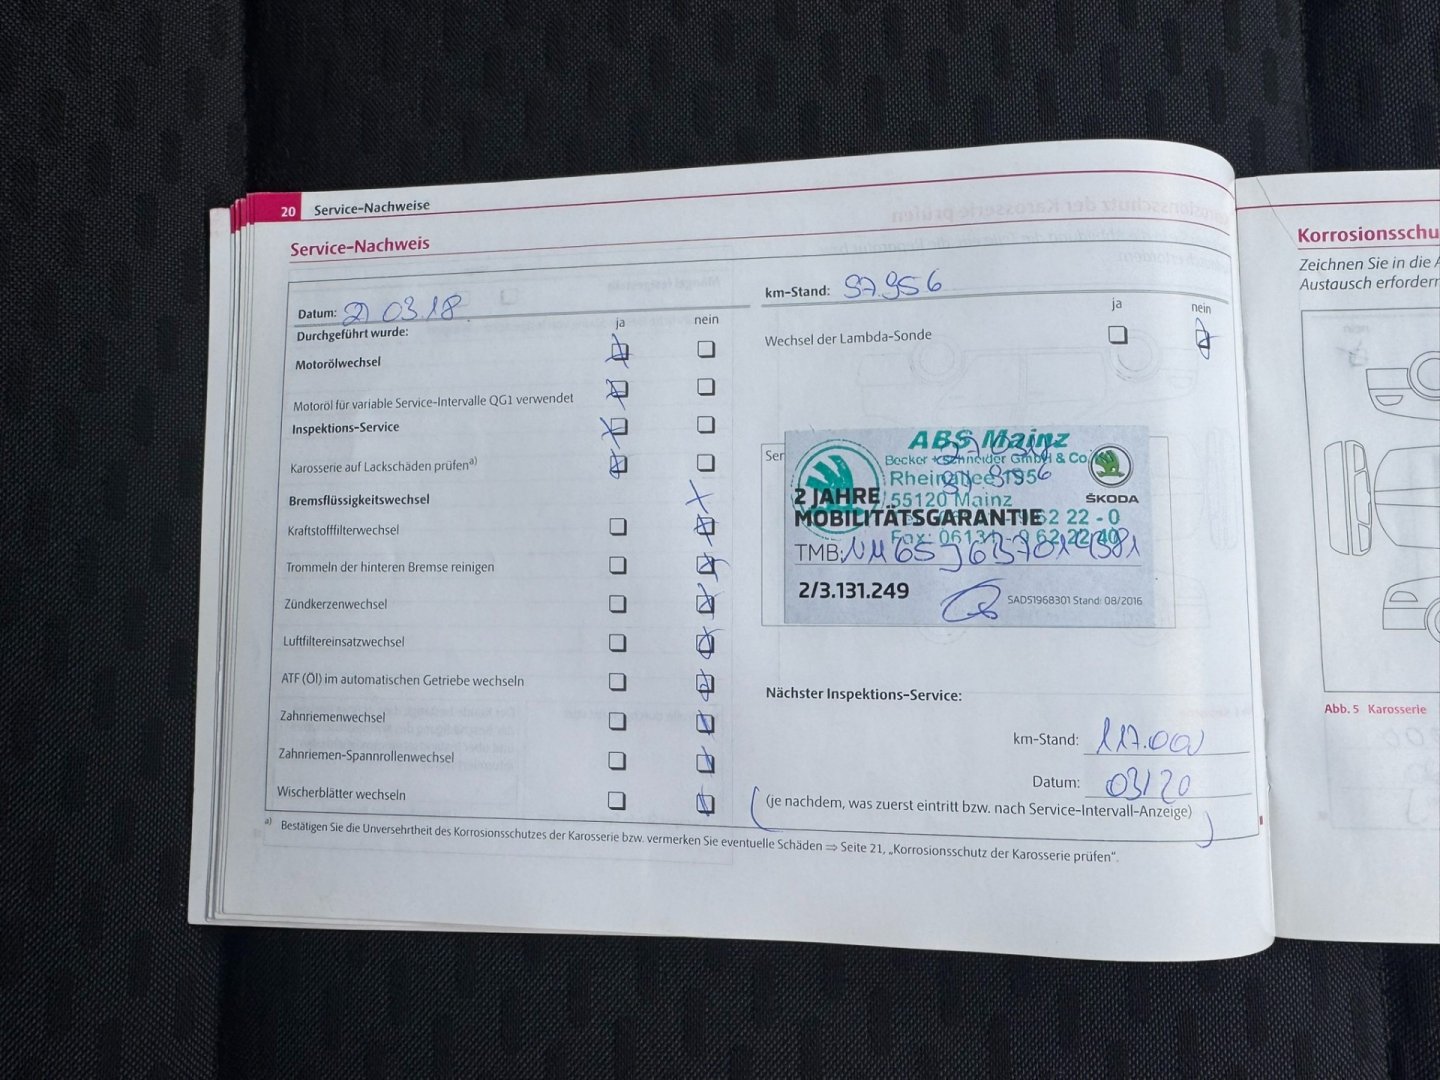 20 Service-Nachweise
Service-Nachweis
Datum: 03.18
km-Stand: 97.956
Durchgeführt wurde:
ja nein
ja nein
Motorölwechsel
Wechsel der Lambda-Sonde
Motoröl für variable Service-Intervalle QG1 verwendet
Inspektions-Service
Karosserie auf Lackschäden prüfen a)
Bremsflüssigkeitswechsel
Kraftstofffilterwechsel
Trommeln der hinteren Bremse reinigen
Zündkerzenwechsel
Luftfiltereinsatzwechsel
ATF (Öl) im automatischen Getriebe wechseln
Zahnriemenwechsel
Zahnriemen-Spannrollenwechsel
Wischerblätter wechseln
Ser
ABS Mainz
Becker + Schneider GmbH & Co
Rheinallee
55120 Mainz
62 22 - 0
Fax: 06131 - 9 62 22 40
ŠKODA
2 JAHRE
MOBILITÄTSGARANTIE
TMB:
2/3.131.249
SAD51968301 Stand: 08/2016
Nächster Inspektions-Service:
km-Stand: 117.000
Datum: 03/20
(je nachdem, was zuerst eintritt bzw. nach Service-Intervall-Anzeige)
a) Bestätigen Sie die Unversehrtheit des Korrosionsschutzes der Karosserie bzw. vermerken Sie eventuelle Schäden ⇒ Seite 21, „Korrosionsschutz der Karosserie prüfen“.
Korrosionsschu
Zeichnen Sie in die A
Austausch erfordern
Abb. 5 Karosserie